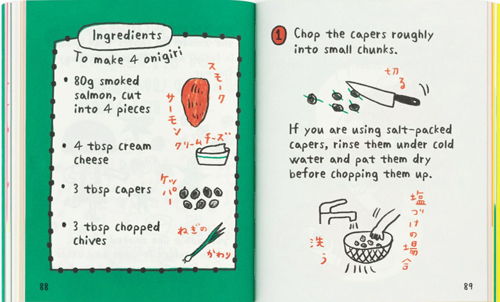 Ingredients
To make 4 onigiri
• 80g smoked
salmon, cut
into 4 pieces
スモーク
サーモン
• 4 tbsp cream
cheese
クリームチーズ
• 3 tbsp capers
ケッパー
• 3 tbsp chopped
chives
ねぎの
かわり
88
1 Chop the capers roughly
into small chunks.
切る
If you are using salt-packed
capers, rinse them under cold
water and pat them dry
before chopping them up.
塩づけの場合
洗う
89